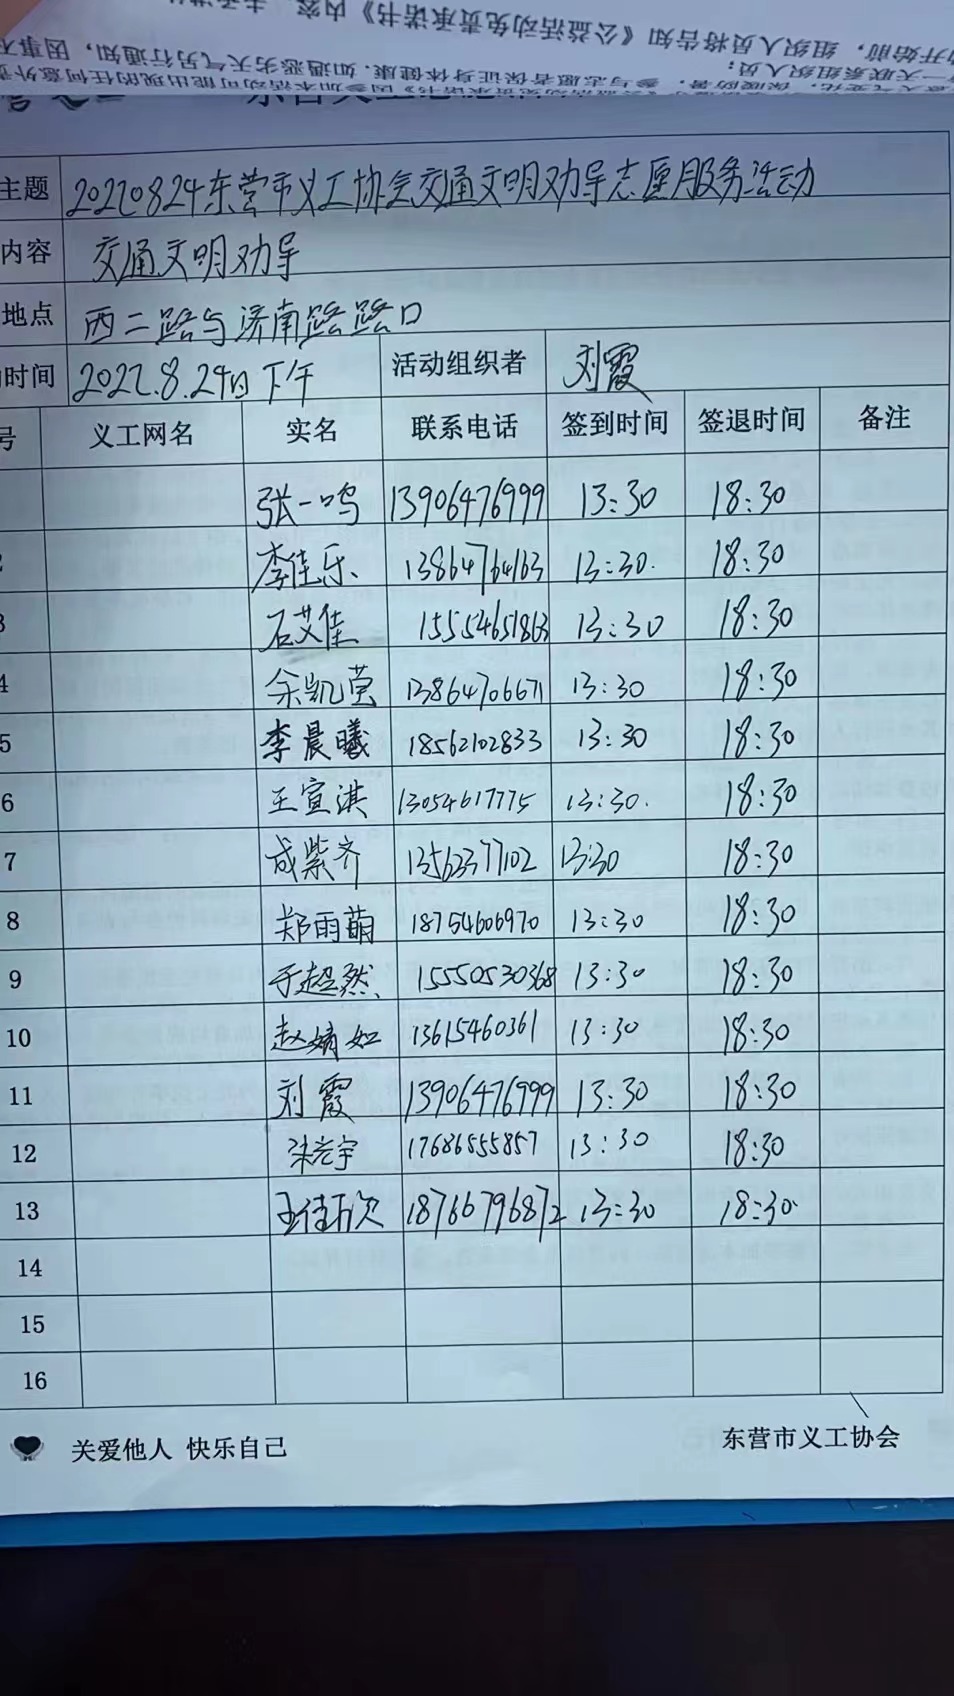 开始前，组织人员将告知《公益活动免责承诺书》内容
一天联系组织人员；
参与志愿者保证身体健康.如遇恶劣天气另行通知，因事不
主题 20220824东营市义工协会交通文明劝导志愿服务活动
内容 交通文明劝导
地点 西二路与济南路路口
时间 2022.8.24日下午 活动组织者 刘霞
号 义工网名 实名 联系电话 签到时间 签退时间 备注
张一鸣 13906476999 13:30 18:30
2 李佳乐 13864764163 13:30. 18:30
3 石艾佳 15554651863 13:30 18:30
4 余凯莹 13864706671 13:30 18:30
5 李晨曦 18562102833 13:30 18:30
6 王宣淇 13054617775 13:30. 18:30
7 成紫齐 13563377102 13:30 18:30
8 郑雨萌 18754606970 13:30 18:30
9 于超然 15550530368 13:30 18:30
10 赵婧如 13615460361 13:30 18:30
11 刘霞 13906476999 13:30 18:30
12 17686555857 13:30 18:30
13 王佳欣 18766796872 13:30 18:30
14
15
16
关爱他人 快乐自己 东营市义工协会